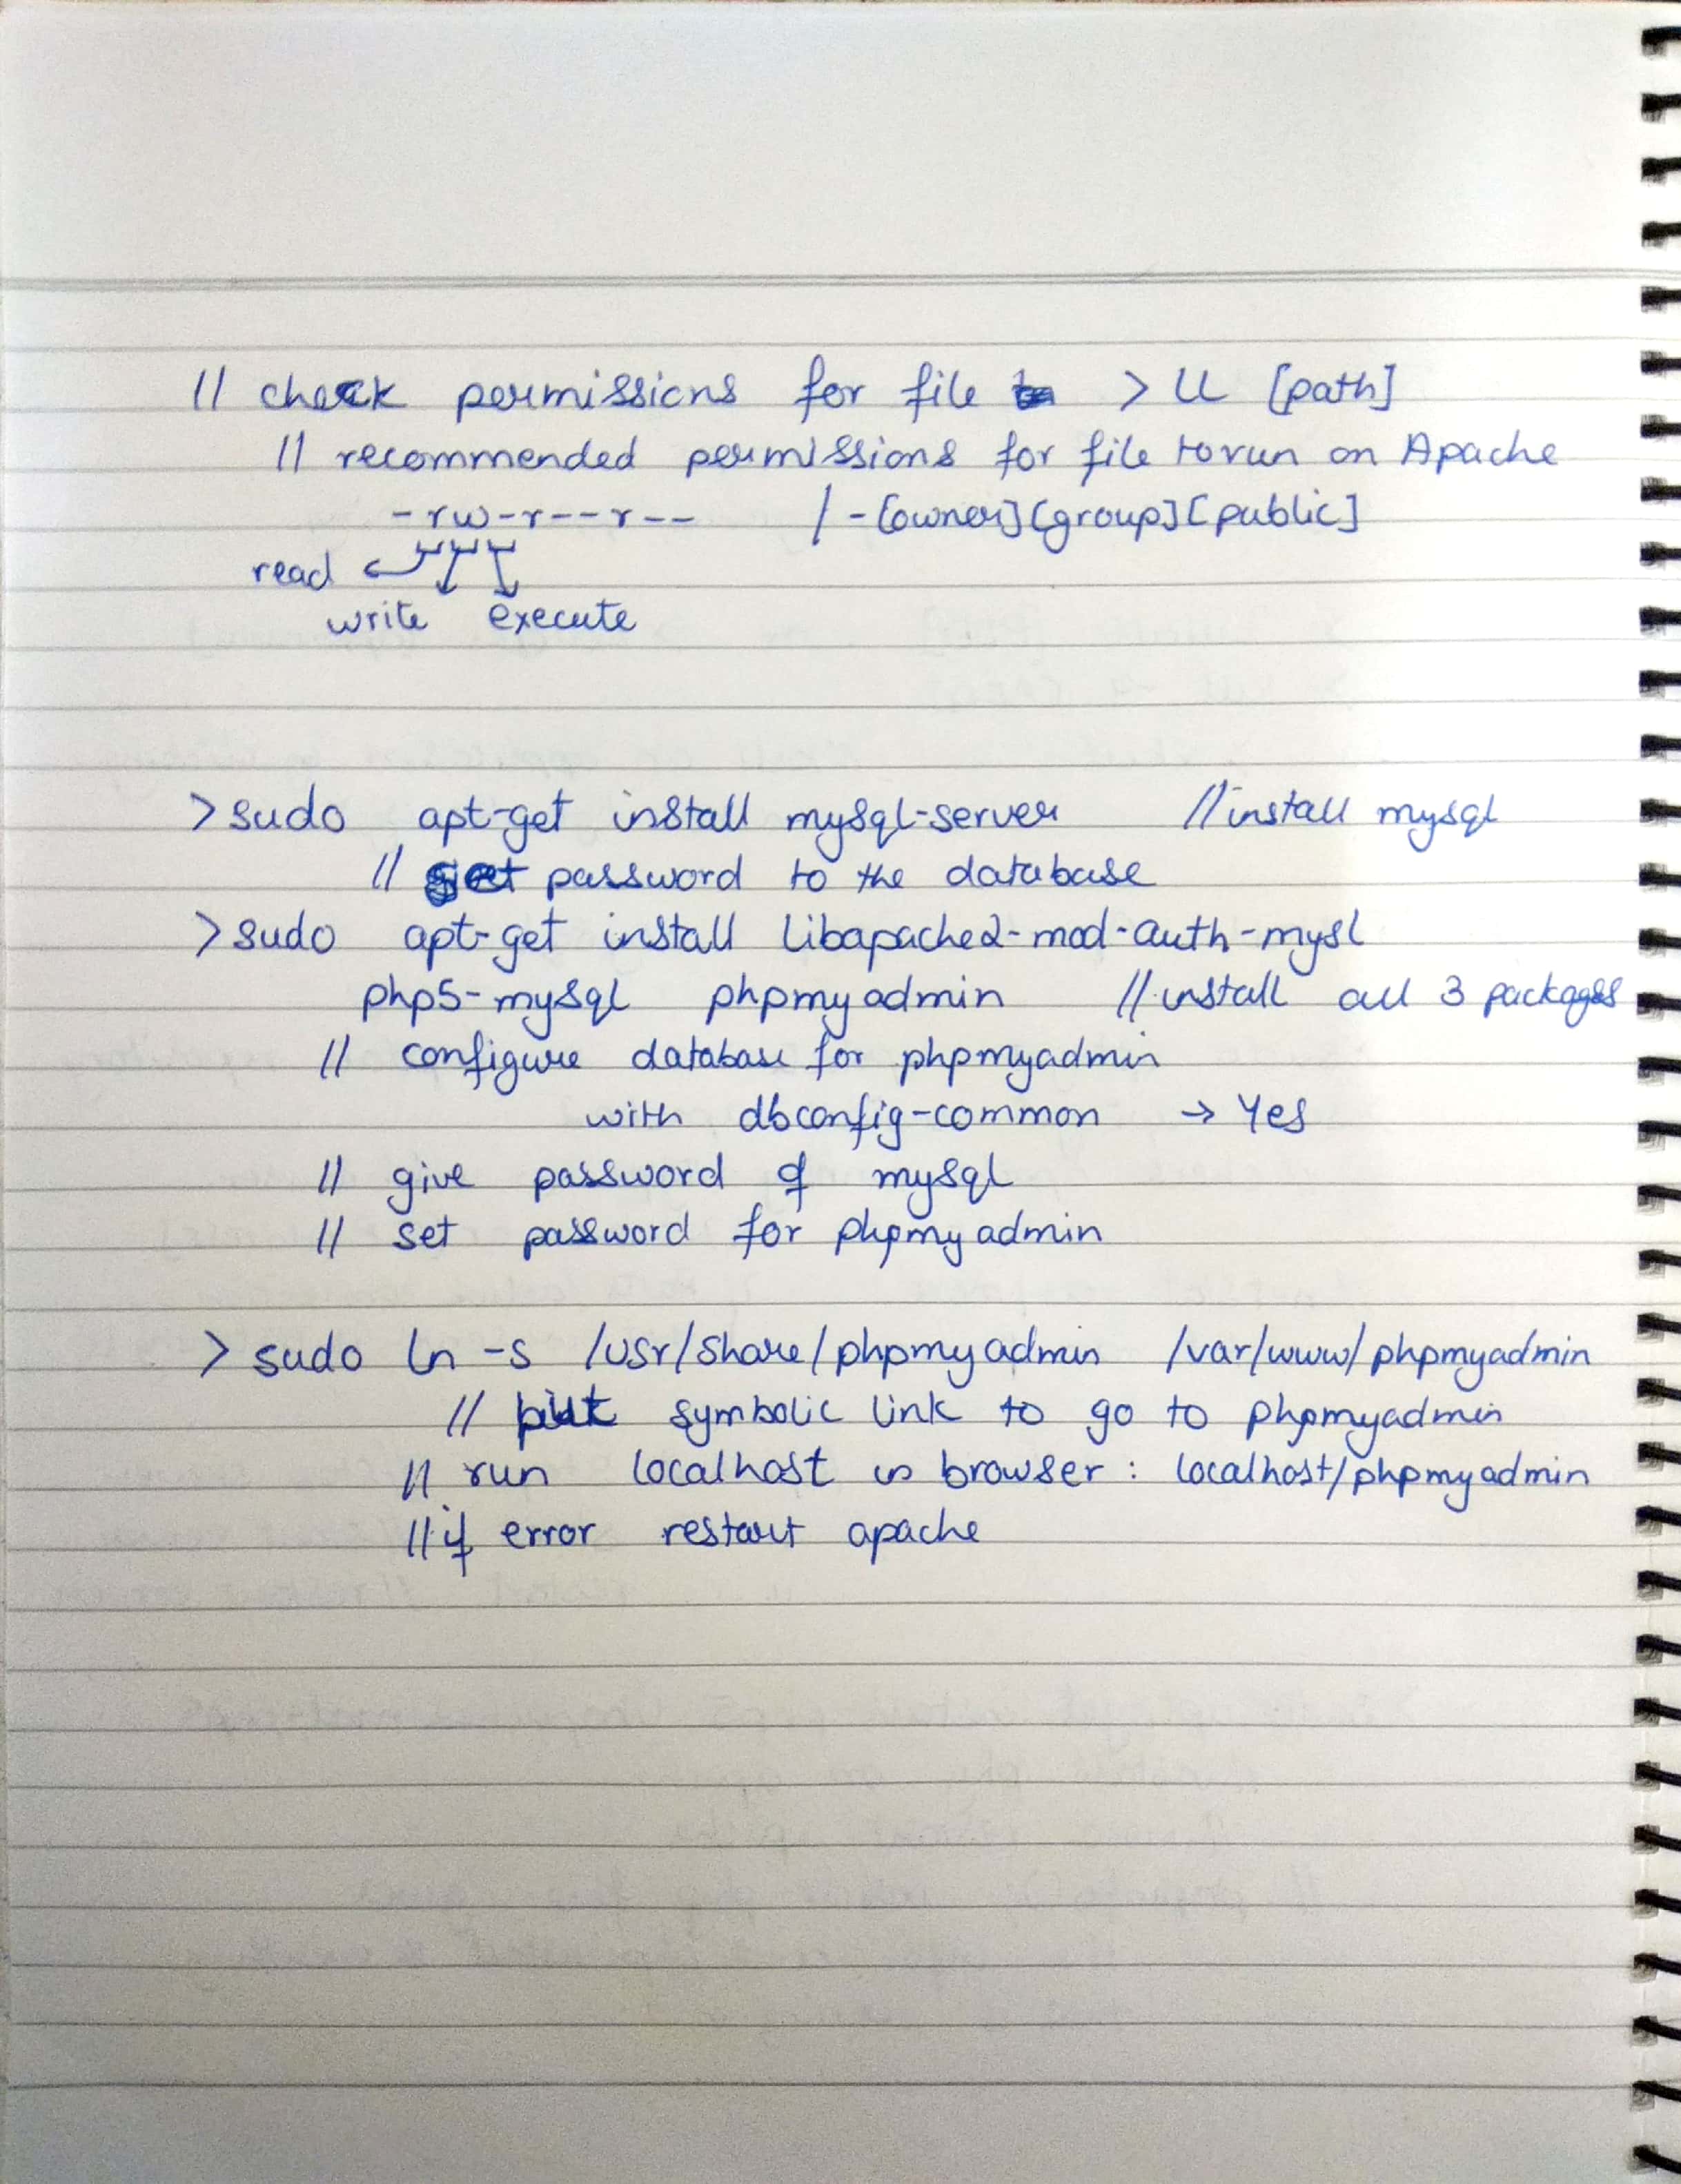 // check permissions for file > ll [path]
// recommended permissions for file to run on Apache
-rw-r--r-- / -[owner][group][public]
read
write execute
>sudo apt-get install mysql-server //install mysql
// set password to the database
>sudo apt-get install libapache2-mod-auth-mysl
php5-mysql phpmyadmin //install all 3 packages
// configure database for phpmyadmin
with dbconfig-common → Yes
// give password of mysql
// set password for phpmyadmin
> sudo ln -s /usr/share/phpmyadmin /var/www/phpmyadmin
// put symbolic link to go to phpmyadmin
// run localhost in browser: localhost/phpmyadmin
// if error restart apache